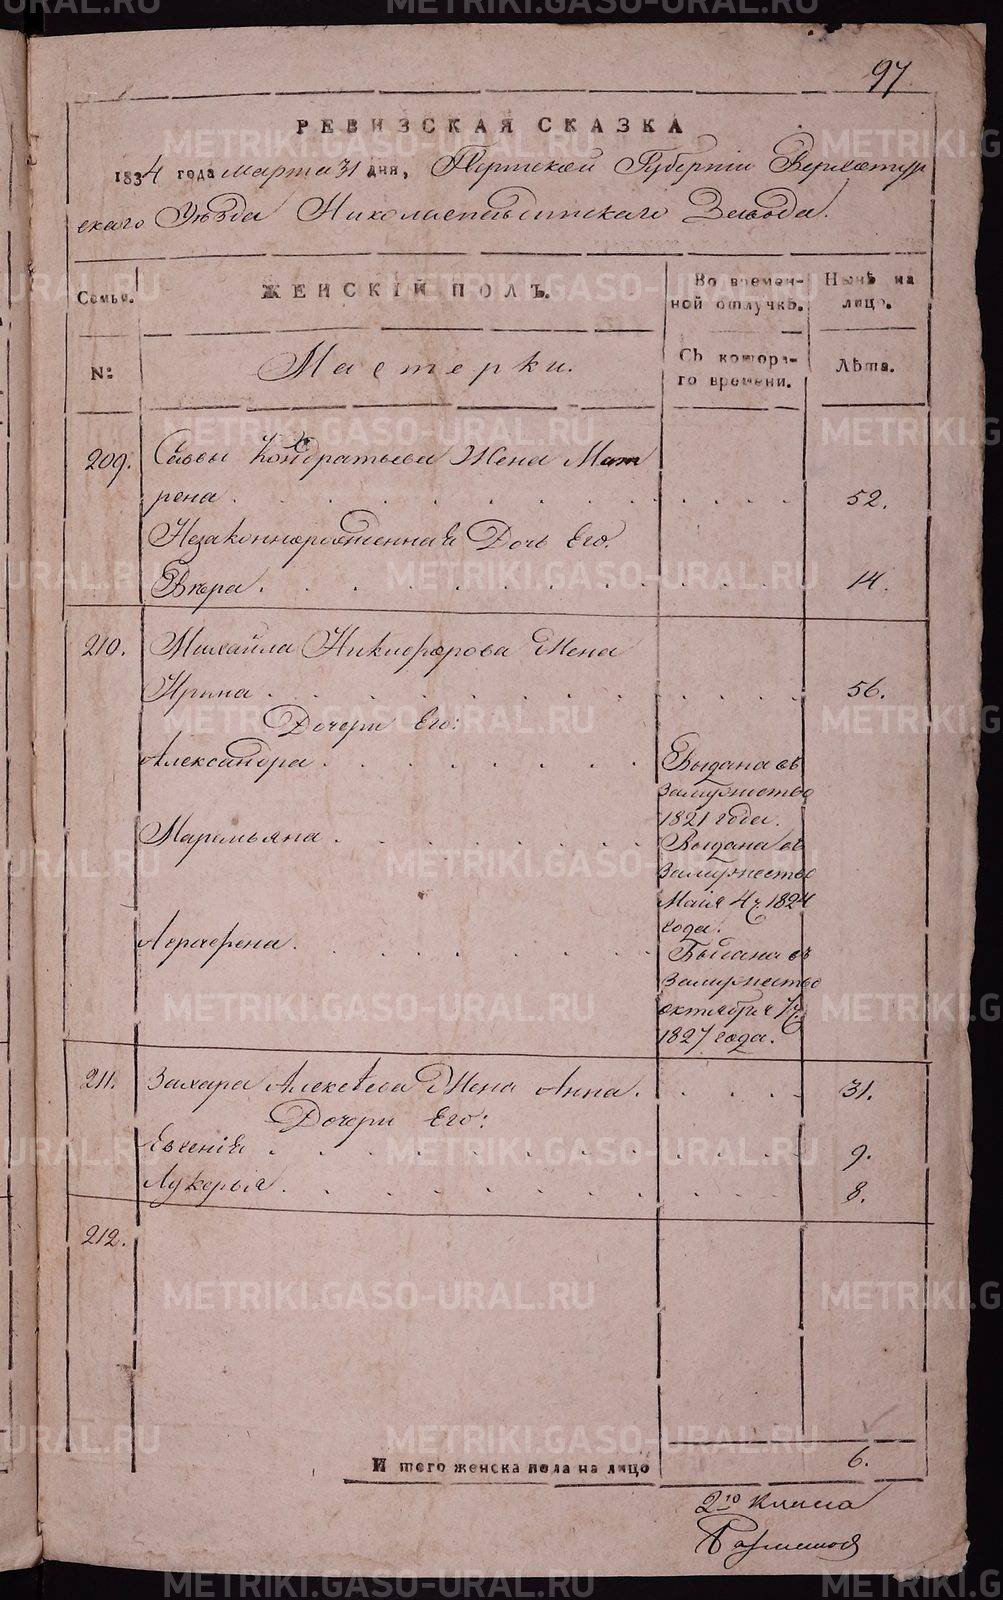 97
РЕВИЗСКАЯ СКАЗКА
1834 года марта 31 дня, Пермской Губерніи Верхотур
скаго Уѣзда Николаепавдинскаго Завода.
Семьи. ЖЕНСКІЙ ПОЛЪ. Во времен- Нынѣ на
ной отлучкѣ. лицо.
№: Мастерки. Съ котора- Лѣта.
го времени.
209. Саввы Кондратьева Жена Мат
рена 52.
Незаконнорожденная Дочь Его.
Вѣра 14.
210. Михайла Никифорова Жена
Ирина 56.
Дочери Его:
Александра Выдана въ
замужество
1821 года.
Маремьяна Выдана въ
замужество
Майя 4 ч. 1824
года.
Аграфена Выдана въ
замужество
октября
1827 года.
211. Захара Алексѣева Жена Анна 31.
Дочери Его:
Явгенія 9.
Лукерья 8.
212.
И того женска пола на лицо 6.
2го класса
METRIKI.GASO-URAL.RU